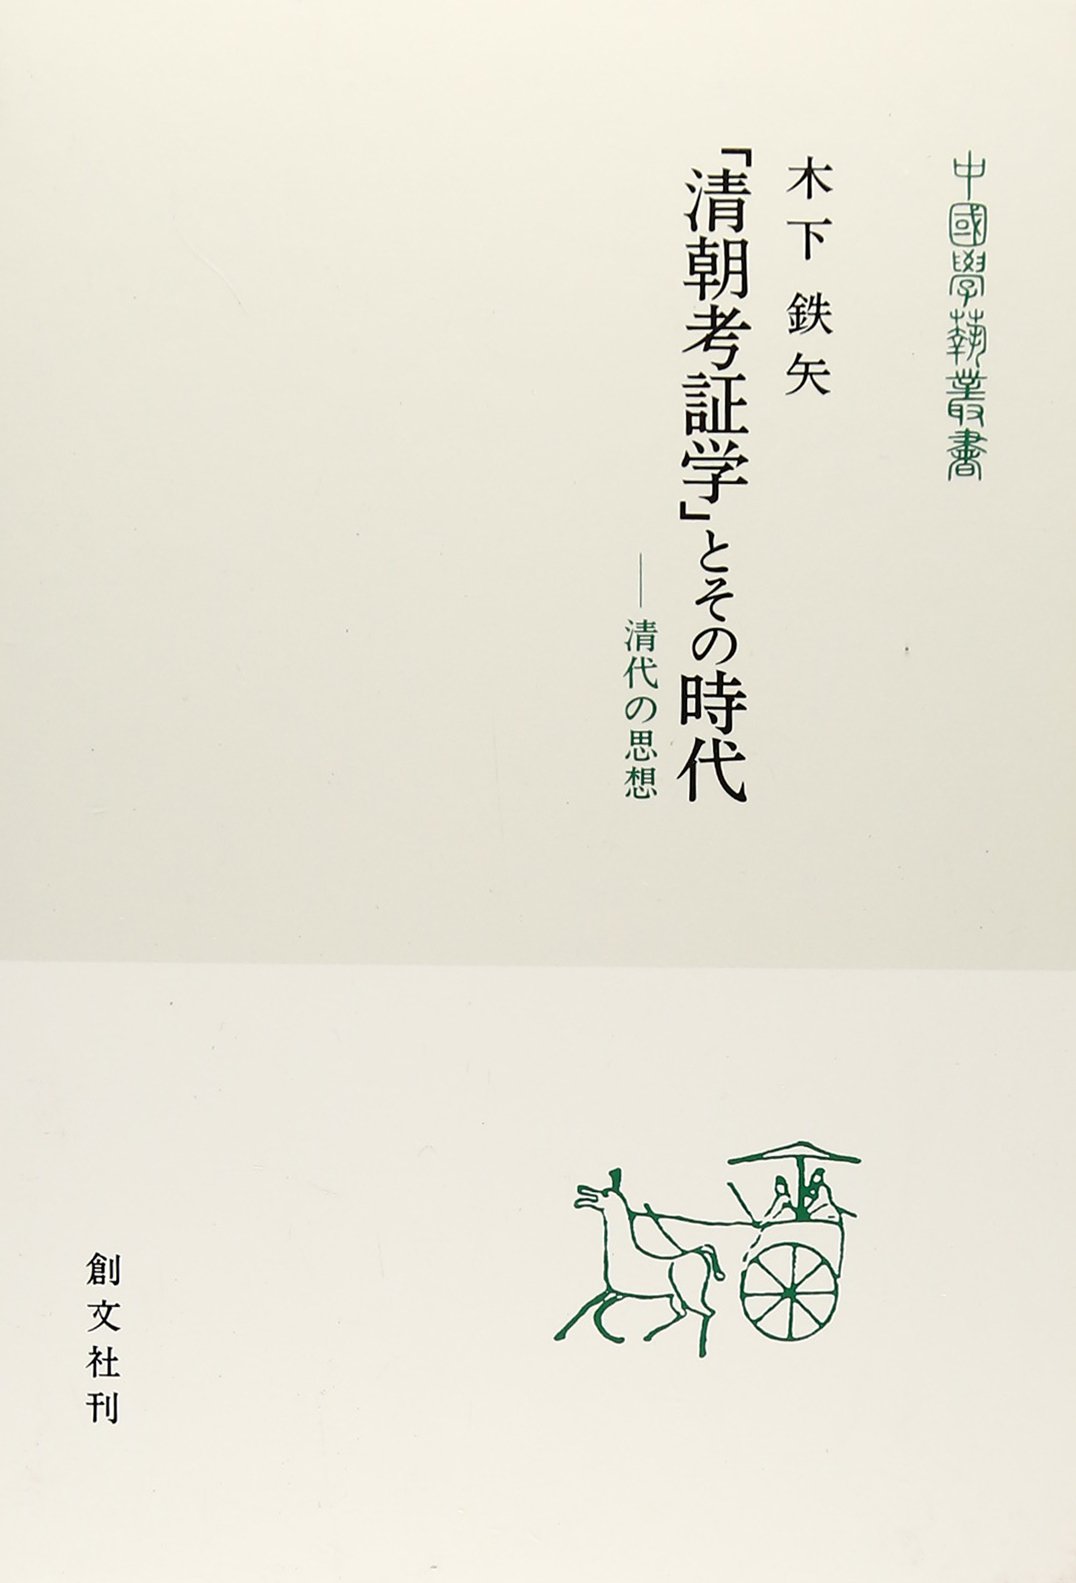 中國學藝叢書
木下鉄矢
「清朝考証学」とその時代
──清代の思想
創文社刊